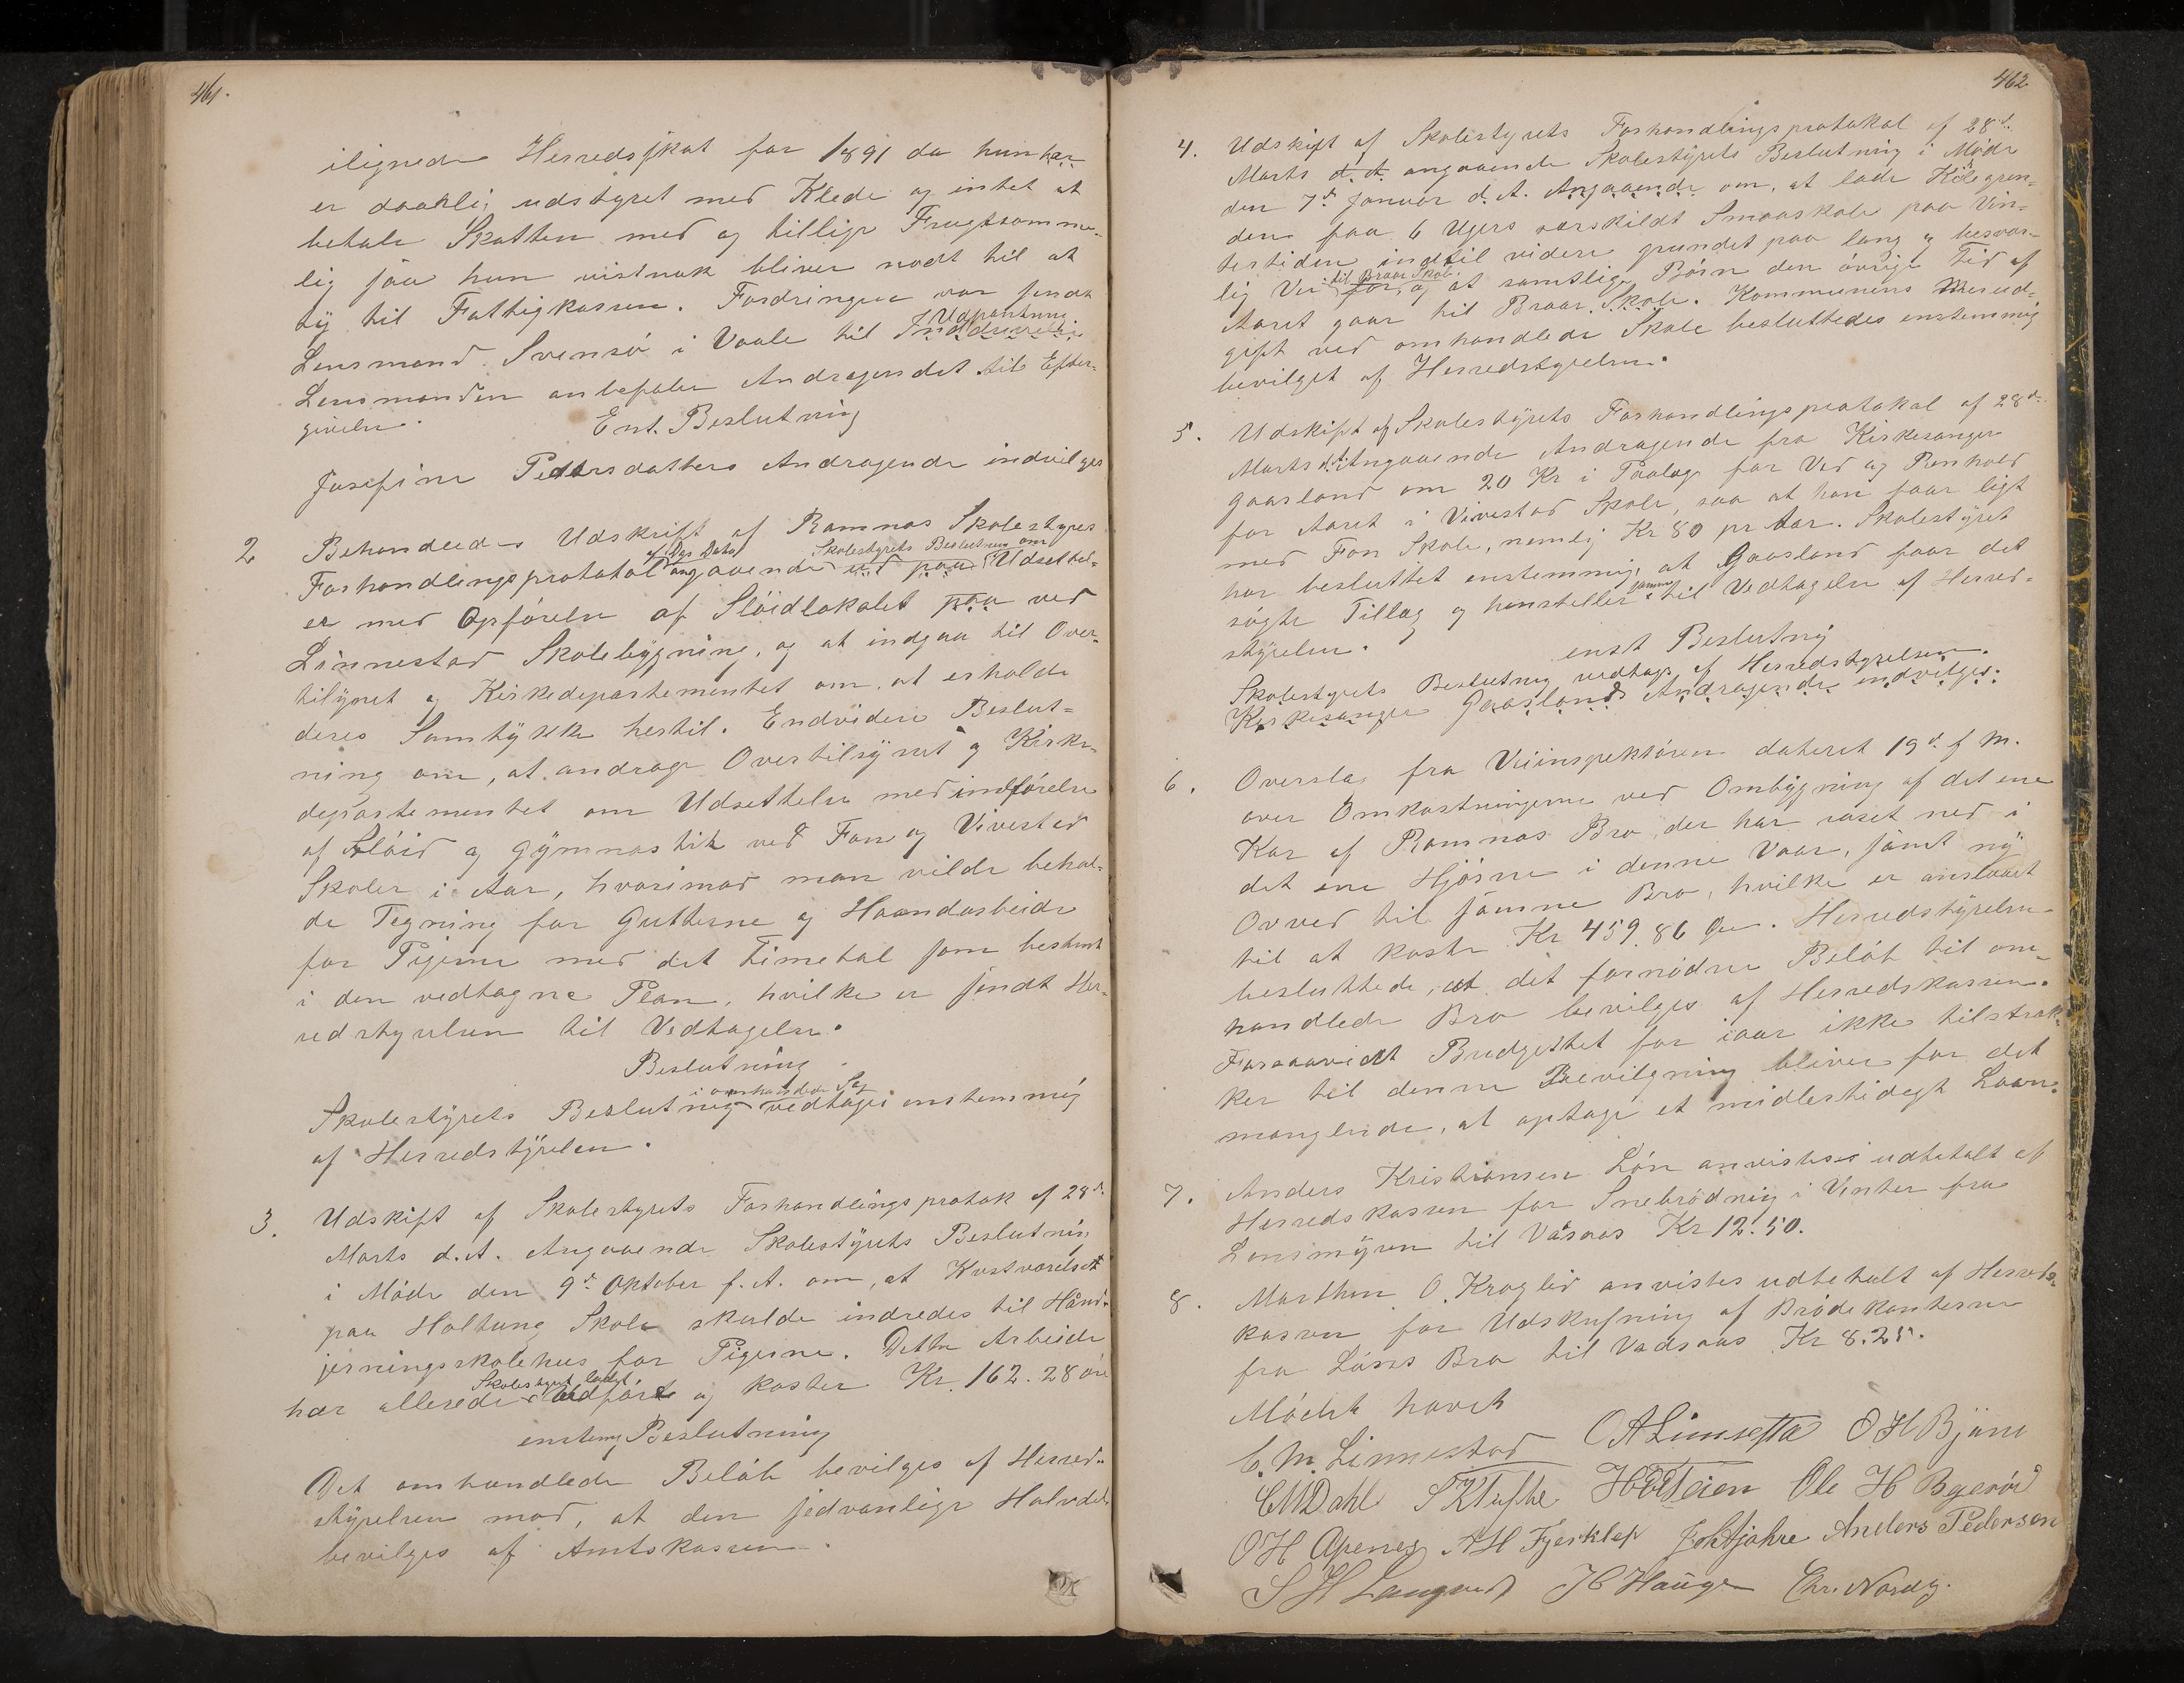 461.
ilignede Herredsskat for 1891 da hun her
er daarlig udstyret med Klede og intet at
betale Skatten med og tillige Frugtsomme-
lig saa hun vistnok bliver nodt til at
ty til Fattigkassen. Fordringen var sendt
Udpantning
Lensmand Svensø i Vaale til Inddrivelse
Lensmanden anbefaler Andragendet til Efter-
givelse.
Ent. Beslutning
Josefine Pedersdatters Andragende indvilges
2 Behandledes Udskrift af Ramnæs Skolestyres
af Dgs Dato Skolestyrets Beslutning om
Forhandlingsprotokol angaaende ud paa Udsettel-
se med Opførelse af Sløidlokalet paa ved
Linnestad Skolebygning, og at indgaa til Over-
tilsynet og Kirkedepartementet om, at erholde
deres Samtykke hertil. Endvidere Beslut-
ning om, at andrage Overtilsynet og Kirke-
departementet om Udsettelse med indførelse
af Sløid og Gymnastik ved Fon og Vivestad
Skoler i Aar, hvorimod man vilde behol-
de Tegning for Gutterne og Haandarbeide
for Pigerne med det Timetal som bestemt
i den vedtagne Plan, hvilke er sendt Her-
redstyrelsen til Vedtagelse.
Beslutning
i omhandlede Sag
Skolestyrets Beslutning vedtages enstemmig
af Herredstyrelsen.
3. Udskift af Skolestyrets Forhandlingsprotok af 28de
Marts d.A. Angaaende Skolestyrets Beslutning
i Møde den 9de Oktober f.A. om, at Kostværelset
paa Holtung Skole skulde indredes til Hånd-
jerningsskolehus for Pigerne. Dette Arbeide
Skolestyret ladet
har allerede udført og koster Kr. 162.28 øre
enstemg Beslutning
Det omhandlede Beløb bevilges af Herred-
styrelsen mod, at den sedvanlige Halvdel
bevilges af Amtskassen.
462
4. Udskift af Skolestyrets Forhandlingsprotokol af 28de
Marts d.A. angaaende Skolestyrets Beslutning i Møde
den 7de Januar d.A. Angaaende om, at lade Kölegren-
den faa 6 Ugers særskildt Smaaskole paa Vin-
tertiden indtil videre grundet paa lang og besvær-
til Braar Skole.
lig Vei for, og at samtlige Børn den øvrige Tid af
Aaret gaar til Braar Skole. Kommunens Merud-
gift ved omhandlede Skole besluttedes enstemmig
bevilget af Herredstyrelsen.
5. Udskift af Skolestyrets Forhandlingsprotokol af 28de
Marts d.A. Angaaende Andragende fra Kirkesanger
Gaasland om 20 Kr i Paalæg for Ved og Renhold
for Aaret i Vivestad Skole, saa at han faar ligt
med Fon Skole, nemlig Kr 80 pr Aar. Skolestyret
har besluttet enstemmig, at Gaasland faar det
samme
søgte Tillæg og henstiller til Vedtagelse af Herred-
styrelsen.
enst Beslutnig
Skolestyrets Beslutnig vedtages af Herredstyrelsen.
Kirkesanger Gaaslands Andragende indvilges.
6. Overslag fra Veiinspektøren dateret 19de f M.
over Omkostningerne ved Ombygning af det ene
Kar af Ramnæs Bro, der har raset ned i
det ene Hjørne i denne Vaar, samt ny
Ovved til samme Bro, hvilke er anslaaet
til at koste Kr 459.86 Øre. Herredstyrelsen
besluttede, at det fornødne Beløb til om-
handlede Bro bevilges af Herredskassen.
Forsaavidt Budgettet for iaar ikke tilstræk-
ker til denne Bevilgning bliver for det
manglende, at optage et midlertidigt Laan.
7. Anders Kristiansen Løn anvistes udbetalt af
Herredskassen for Snebrødnig i Vinter fra
Lensmyren til Vasaas Kr 12.50.
8. Marthin O. Kraglid anvistes udbetalt af Herreds-
kassen for Udskufning af Brødekanterne
fra Løvas Bro til Vadsaas Kr 8.25.
Mødet hævet
C. M. Linnestad OA Linnestta O H Bjune
CMDahl S Klufte HO Teien Ole H Bgerød
OH Apenes AH Fjerklep Joh Hjahre Anders Pedersen
S H Langved H Hauge Chr. Nordg.